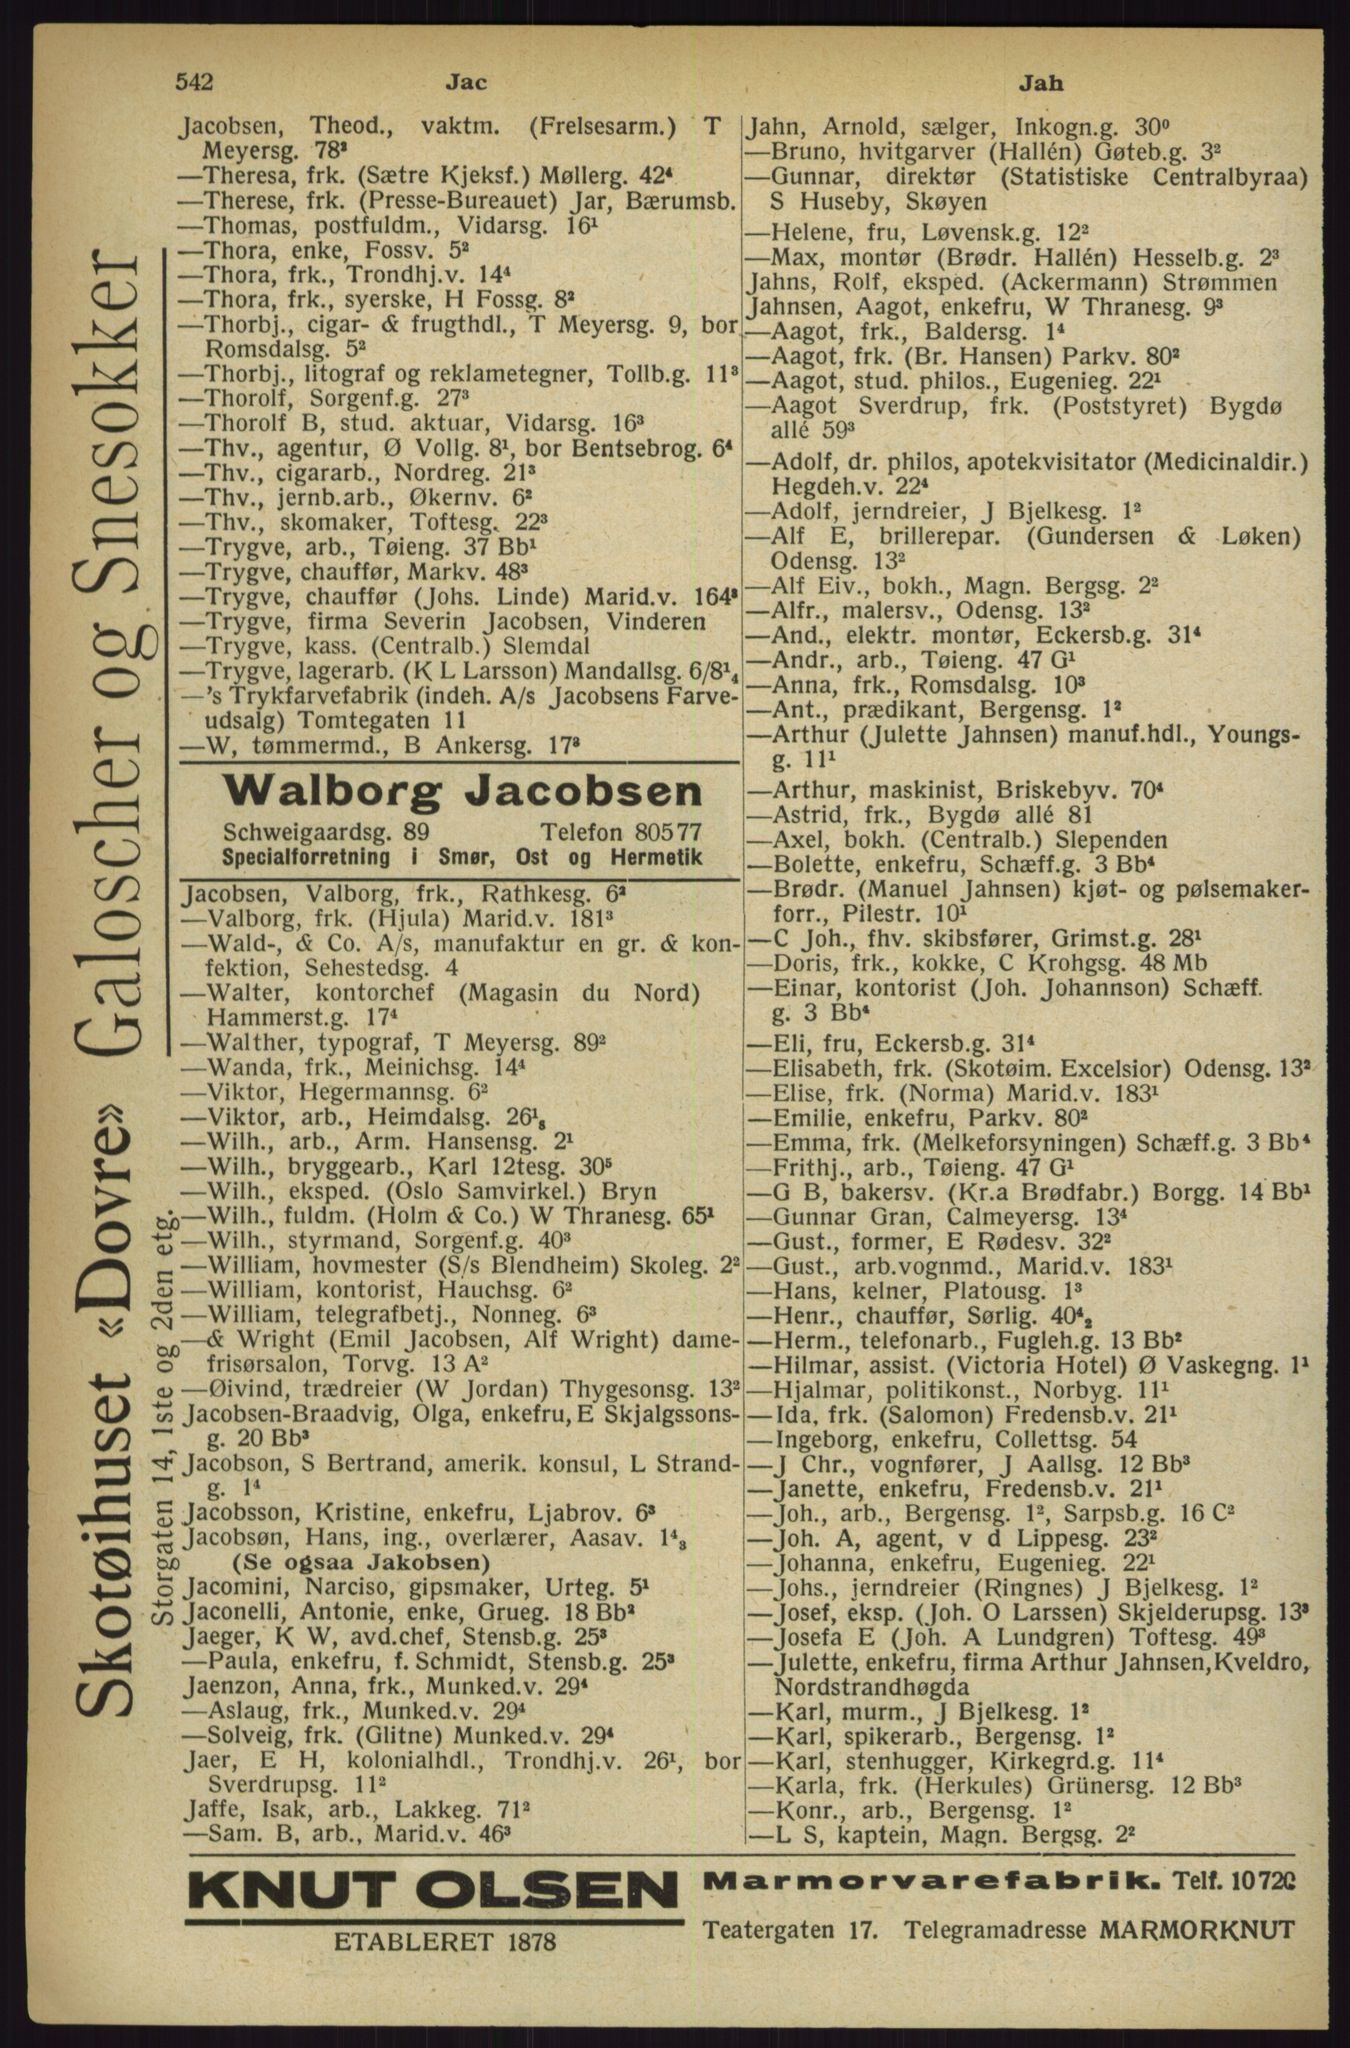 542 Jac Jah
Jacobsen, Theod., vaktm. (Frelsesarm.) T
Meyersg. 78³
—Theresa, frk. (Sætre Kjeksf.) Møllerg. 42⁴
—Therese, frk. (Presse-Bureauet) Jar, Bærumsb.
—Thomas, postfuldm., Vidarsg. 16¹
—Thora, enke, Fossv. 5²
—Thora, frk., Trondhj.v. 14⁴
—Thora, frk., syerske, H Fossg. 8²
—Thorbj., cigar- & frugthdl., T Meyersg. 9, bor
Romsdalsg. 5²
—Thorbj., litograf og reklametegner, Tollb.g. 11³
—Thorolf, Sorgenf.g. 27³
—Thorolf B, stud. aktuar, Vidarsg. 16³
—Thv., agentur, Ø Vollg. 8¹, bor Bentsebrog. 6⁴
—Thv., cigararb., Nordreg. 21³
—Thv., jernb.arb., Økernv. 6²
—Thv., skomaker, Toftesg. 22³
—Trygve, arb., Tøieng. 37 Bb¹
—Trygve, chauffør, Markv. 48³
—Trygve, chauffør (Johs. Linde) Marid.v. 164³
—Trygve, firma Severin Jacobsen, Vinderen
—Trygve, kass. (Centralb.) Slemdal
—Trygve, lagerarb. (K L Larsson) Mandallsg. 6/8¹₄
—'s Trykfarvefabrik (indeh. A/s Jacobsens Farve-
udsalg) Tomtegaten 11
—W, tømmermd., B Ankersg. 17³
Walborg Jacobsen
Schweigaardsg. 89 Telefon 80577
Specialforretning i Smør, Ost og Hermetik
Jacobsen, Valborg, frk., Rathkesg. 6²
—Valborg, frk. (Hjula) Marid.v. 181³
—Wald-, & Co. A/s, manufaktur en gr. & kon-
fektion, Sehestedsg. 4
—Walter, kontorchef (Magasin du Nord)
Hammerst.g. 17⁴
—Walther, typograf, T Meyersg. 89²
—Wanda, frk., Meinichsg. 14⁴
—Viktor, Hegermannsg. 6²
—Viktor, arb., Heimdalsg. 26¹₈
—Wilh., arb., Arm. Hansensg. 2¹
—Wilh., bryggearb., Karl 12tesg. 30⁵
—Wilh., eksped. (Oslo Samvirkel.) Bryn
—Wilh., fuldm. (Holm & Co.) W Thranesg. 65¹
—Wilh., styrmand, Sorgenf.g. 40³
—William, hovmester (S/s Blendheim) Skoleg. 2²
—William, kontorist, Hauchsg. 6²
—William, telegrafbetj., Nonneg. 6³
—& Wright (Emil Jacobsen, Alf Wright) dame-
frisørsalon, Torvg. 13 A²
—Øivind, trædreier (W Jordan) Thygesonsg. 13²
Jacobsen-Braadvig, Olga, enkefru, E Skjalgssons-
g. 20 Bb³
Jacobson, S Bertrand, amerik. konsul, L Strand-
g. 1⁴
Jacobsson, Kristine, enkefru, Ljabrov. 6³
Jacobsøn, Hans, ing., overlærer, Aasav. 1⁴₃
(Se ogsaa Jakobsen)
Jacomini, Narciso, gipsmaker, Urteg. 5¹
Jaconelli, Antonie, enke, Grueg. 18 Bb²
Jaeger, K W, avd.chef, Stensb.g. 25³
—Paula, enkefru, f. Schmidt, Stensb.g. 25³
Jaenzon, Anna, frk., Munked.v. 29⁴
—Aslaug, frk., Munked.v. 29⁴
—Solveig, frk. (Glitne) Munked.v. 29⁴
Jaer, E H, kolonialhdl., Trondhj.v. 26¹, bor
Sverdrupsg. 11²
Jaffe, Isak, arb., Lakkeg. 71²
—Sam. B, arb., Marid.v. 46³
Jahn, Arnold, sælger, Inkogn.g. 30⁰
—Bruno, hvitgarver (Hallén) Gøteb.g. 3²
—Gunnar, direktør (Statistiske Centralbyraa)
S Huseby, Skøyen
—Helene, fru, Løvensk.g. 12²
—Max, montør (Brødr. Hallén) Hesselb.g. 2³
Jahns, Rolf, eksped. (Ackermann) Strømmen
Jahnsen, Aagot, enkefru, W Thranesg. 9³
—Aagot, frk., Baldersg. 1⁴
—Aagot, frk. (Br. Hansen) Parkv. 80²
—Aagot, stud. philos., Eugenieg. 22¹
—Aagot Sverdrup, frk. (Poststyret) Bygdø
allé 59³
—Adolf, dr. philos, apotekvisitator (Medicinaldir.)
Hegdeh.v. 22⁴
—Adolf, jerndreier, J Bjelkesg. 1²
—Alf E, brillerepar. (Gundersen & Løken)
Odensg. 13²
—Alf Eiv., bokh., Magn. Bergsg. 2²
—Alfr., malersv., Odensg. 13²
—And., elektr. montør, Eckersb.g. 31⁴
—Andr., arb., Tøieng. 47 G¹
—Anna, frk., Romsdalsg. 10³
—Ant., prædikant, Bergensg. 1²
—Arthur (Julette Jahnsen) manuf.hdl., Youngs-
g. 11¹
—Arthur, maskinist, Briskebyv. 70⁴
—Astrid, frk., Bygdø allé 81
—Axel, bokh. (Centralb.) Slependen
—Bolette, enkefru, Schæff.g. 3 Bb⁴
—Brødr. (Manuel Jahnsen) kjøt- og pølsemaker-
forr., Pilestr. 10¹
—C Joh., fhv. skibsfører, Grimst.g. 28¹
—Doris, frk., kokke, C Krohgsg. 48 Mb
—Einar, kontorist (Joh. Johannson) Schæff.
g. 3 Bb⁴
—Eli, fru, Eckersb.g. 31⁴
—Elisabeth, frk. (Skotøim. Excelsior) Odensg. 13²
—Elise, frk. (Norma) Marid.v. 183¹
—Emilie, enkefru, Parkv. 80²
—Emma, frk. (Melkeforsyningen) Schæff.g. 3 Bb⁴
—Frithj., arb., Tøieng. 47 G¹
—G B, bakersv. (Kr.a Brødfabr.) Borgg. 14 Bb¹
—Gunnar Gran, Calmeyersg. 13⁴
—Gust., former, E Rødesv. 32²
—Gust., arb.vognmd., Marid.v. 183¹
—Hans, kelner, Platousg. 1³
—Henr., chauffør, Sørlig. 40⁴₂
—Herm., telefonarb., Fugleh.g. 13 Bb²
—Hilmar, assist. (Victoria Hotel) Ø Vaskegng. 1¹
—Hjalmar, politikonst., Norbyg. 11¹
—Ida, frk. (Salomon) Fredensb.v. 21¹
—Ingeborg, enkefru, Collettsg. 54
—J Chr., vognfører, J Aallsg. 12 Bb³
—Janette, enkefru, Fredensb.v. 21¹
—Joh., arb., Bergensg. 1², Sarpsb.g. 16 C²
—Joh. A, agent, v d Lippesg. 23²
—Johanna, enkefru, Eugenieg. 22¹
—Johs., jerndreier (Ringnes) J Bjelkesg. 1²
—Josef, eksp. (Joh. O Larssen) Skjelderupsg. 13³
—Josefa E (Joh. A Lundgren) Toftesg. 49³
—Julette, enkefru, firma Arthur Jahnsen, Kveldro,
Nordstrandhøgda
—Karl, murm., J Bjelkesg. 1²
—Karl, spikerarb., Bergensg. 1²
—Karl, stenhugger, Kirkegrd.g. 11⁴
—Karla, frk. (Herkules) Grünersg. 12 Bb³
—Konr., arb., Bergensg. 1²
—L S, kaptein, Magn. Bergsg. 2²
Skotøihuset «Dovre» Galoscher og Snesokker
Storgaten 14, 1ste og 2den etg.
KNUT OLSEN
ETABLERET 1878
Marmorvarefabrik. Telf. 10720
Teatergaten 17. Telegramadresse MARMORKNUT